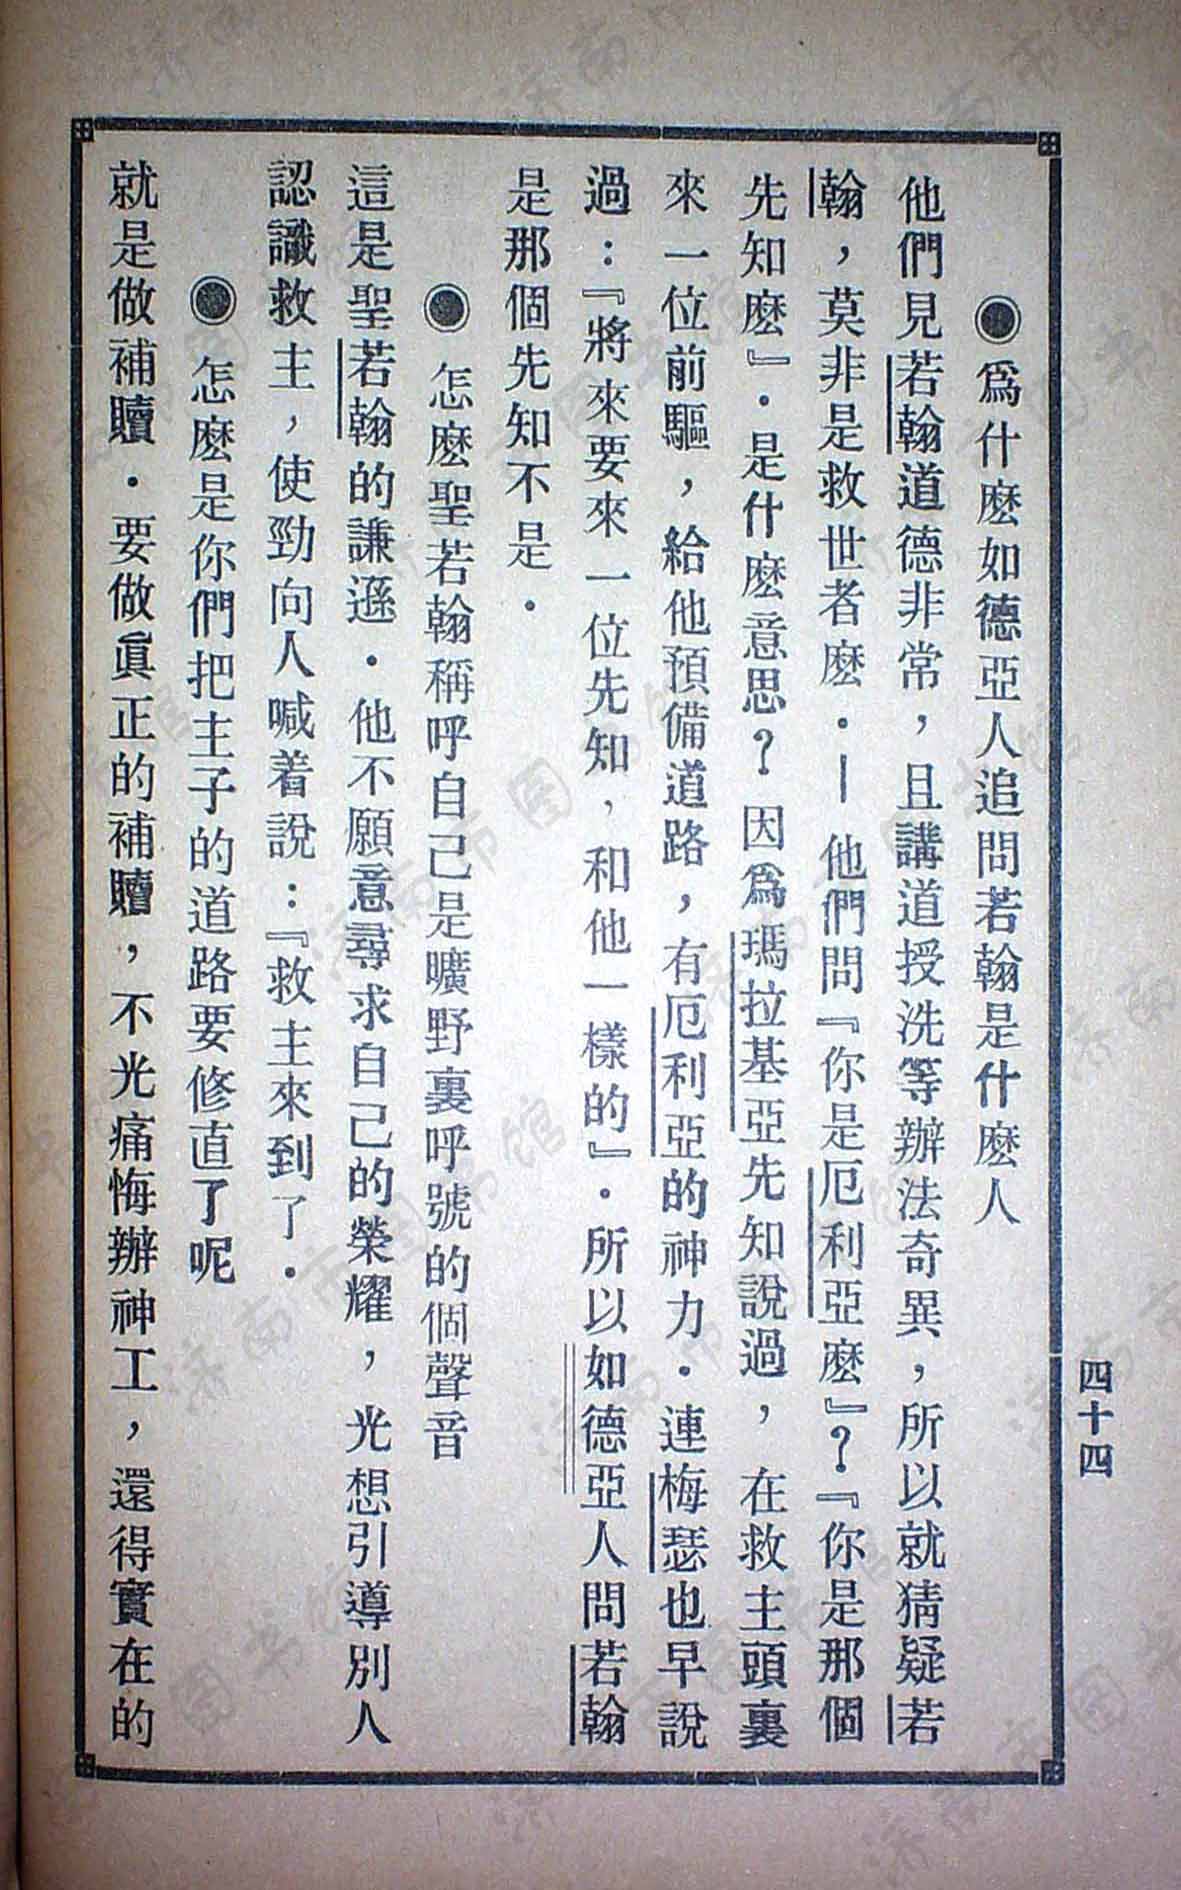 ◉爲什麽如德亞人追問若翰是什麽人
他們見若翰道德非常，且講道授洗等辦法奇異，所以就猜疑若
翰，莫非是救世者麽．—他們問『你是厄利亞麽』？．『你是那個
先知麽』．是什麽意思？因爲瑪拉基亞先知說過，在救主頭裏
來一位前驅，給他預備道路，有厄利亞的神力．連梅瑟也早說
過：『將來要來一位先知，和他一樣的』．所以如德亞人問若翰
是那個先知不是．
◉怎麽聖若翰稱呼自己是曠野裏呼號的個聲音
這是聖若翰的謙遜．他不願意尋求自己的榮耀，光想引導別人
認識救主，使勁向人喊着說：『救主來到了．
◉怎麽是你們把主子的道路要修直了呢
就是做補贖．要做眞正的補贖，不光痛悔辦神工，還得實在的
四十四
济南市图书馆